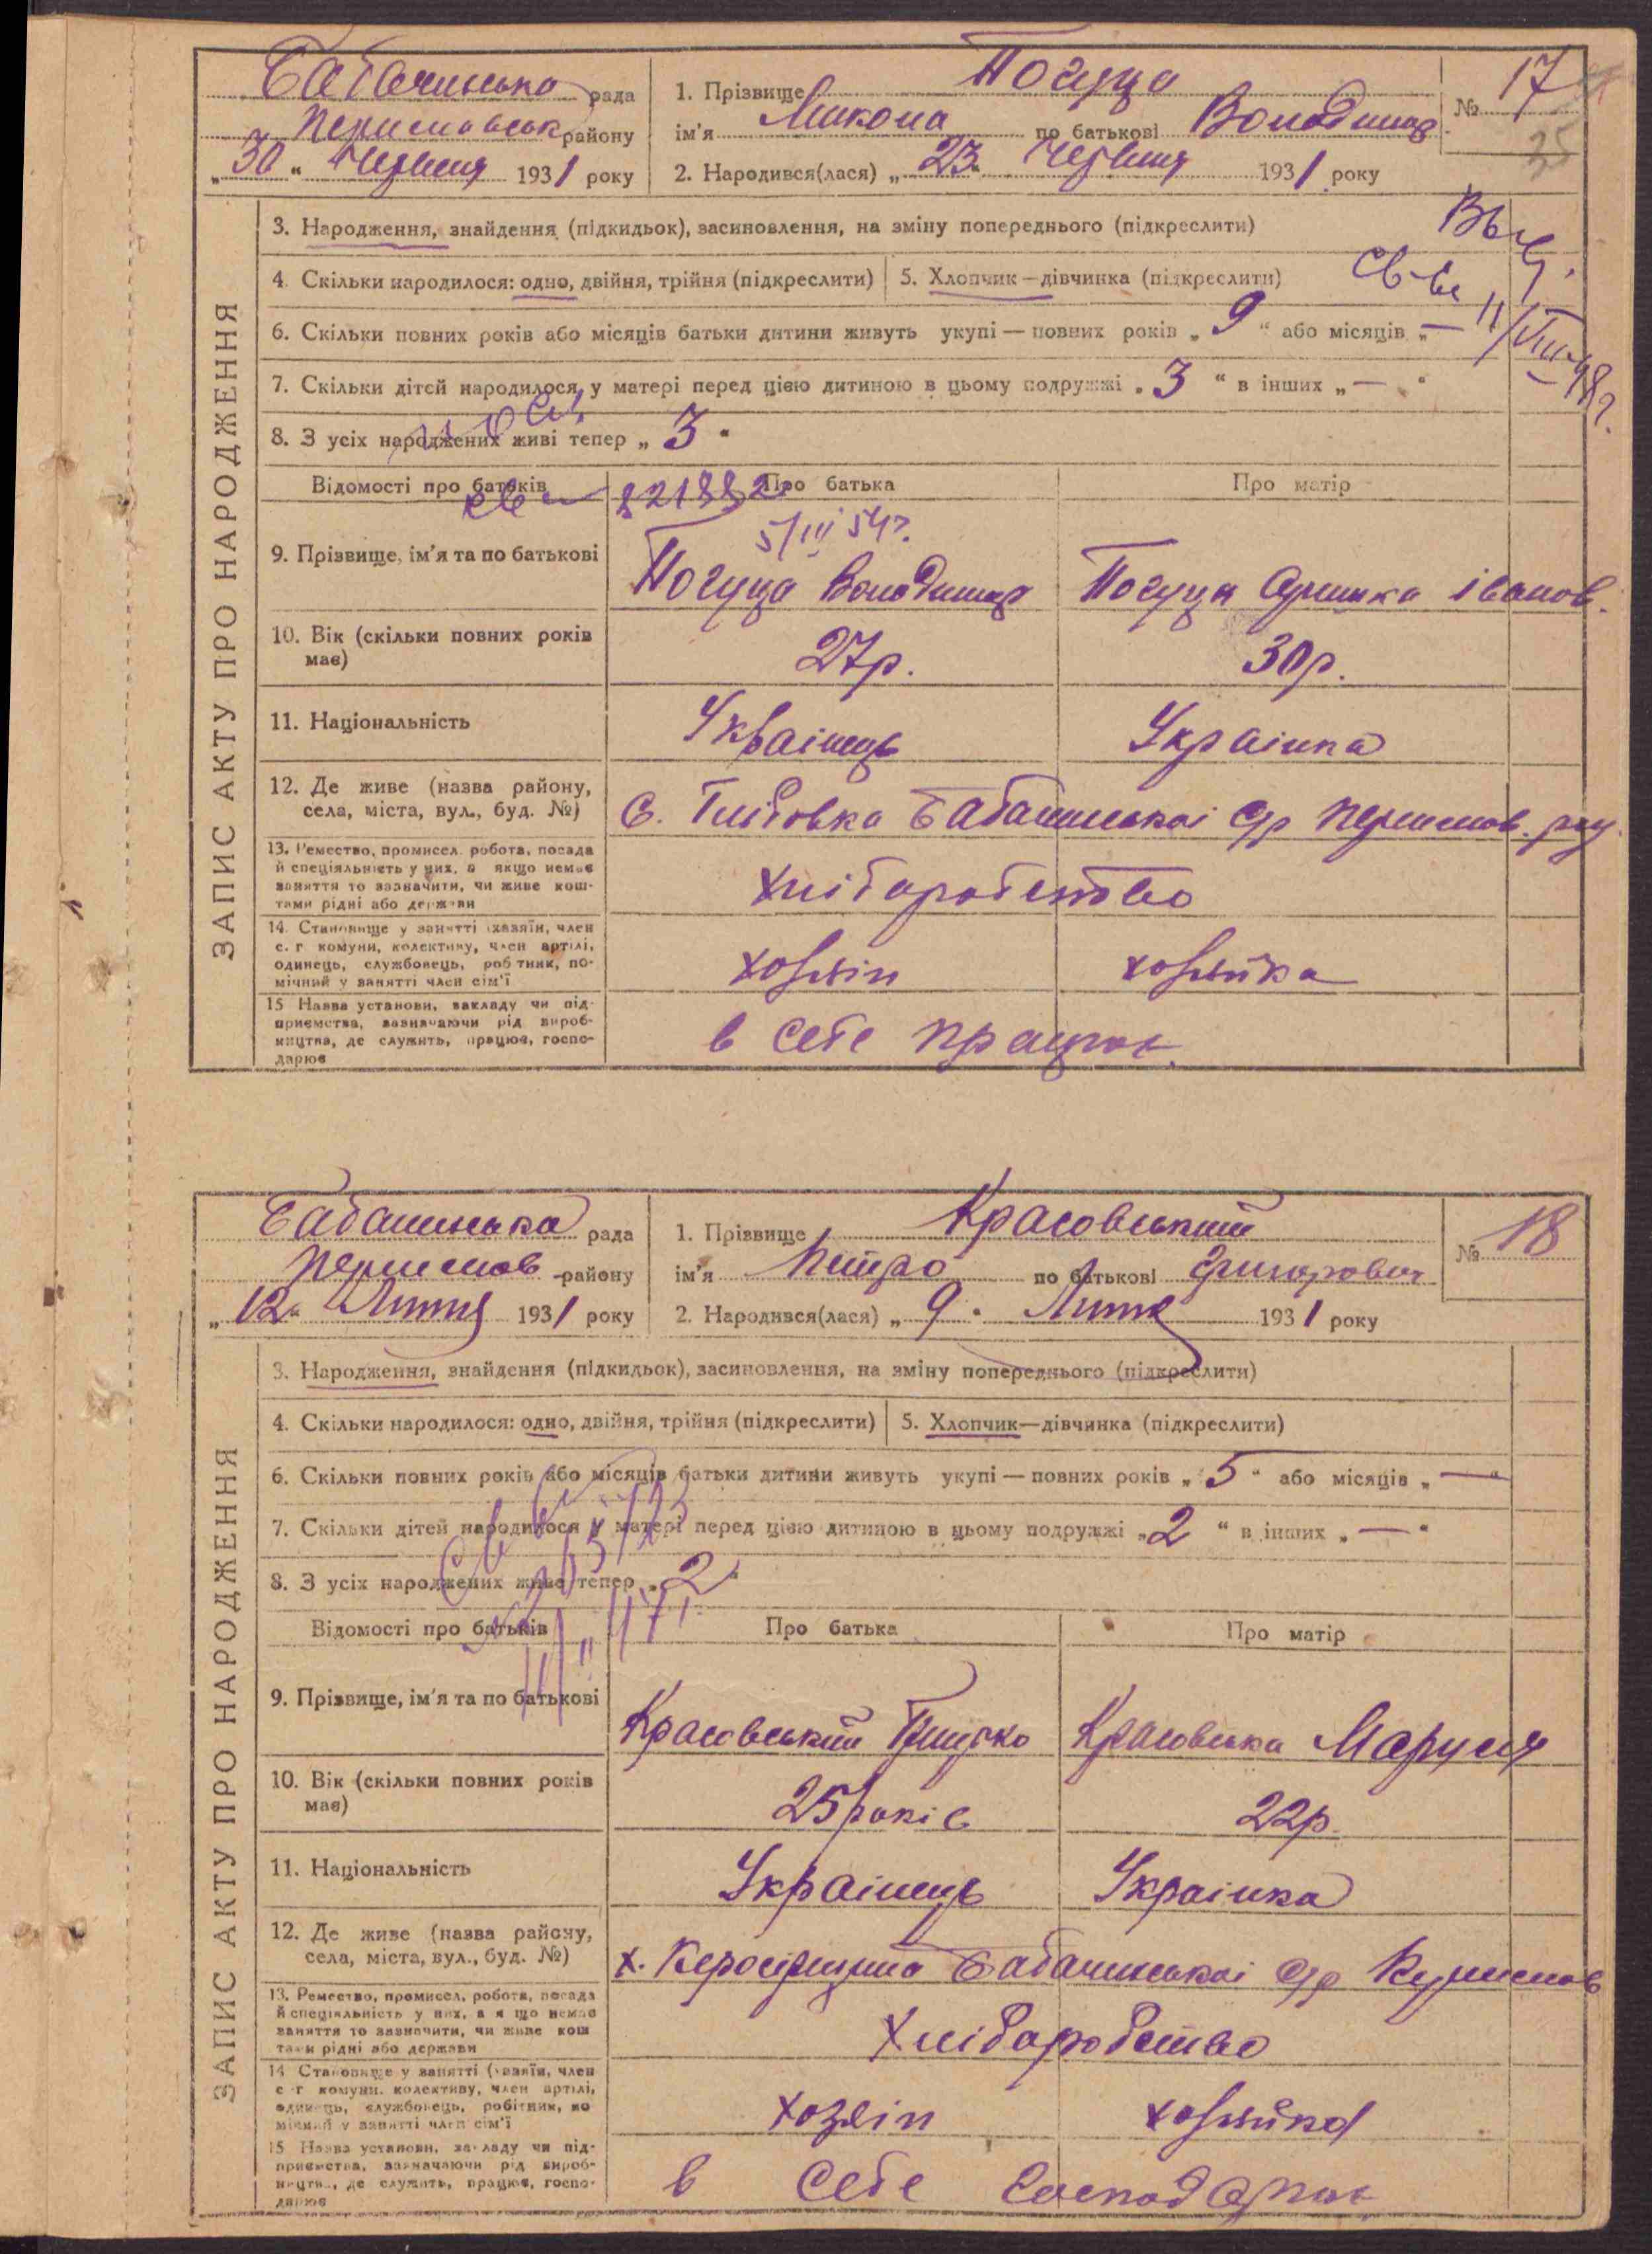 Бабачинська рада
району
„30“ Червня 1931 року
1. Прізвище Погуца
ім'я Микола по батькові Володимир
2. Народився(лася) „23“ Червня 1931 року
№ 17
35
ЗАПИС АКТУ ПРО НАРОДЖЕННЯ
3. Народження, знайдення (підкидьок), засиновлення, на зміну попереднього (підкреслити)
4. Скільки народилося: одно, двійня, трійня (підкреслити)
5. Хлопчик—дівчинка (підкреслити)
6. Скільки повних років або місяців батьки дитини живуть укупі — повних років „9“ або місяців „—“
7. Скільки дітей народилося у матері перед цією дитиною в цьому подружжі „3“ в інших „—“
8. З усіх народжених живі тепер „3“
Відомості про батьків
Про батька
Про матір
5/III 54г.
9. Прізвище, ім'я та по батькові
Погуца Володимир
Погуца Оришка Іванов.
10. Вік (скільки повних років має)
27р.
30р.
11. Національність
Українець
Українка
12. Де живе (назва району,
села, міста, вул., буд. №)
С. Глібовка Бабачинськоі С/р
13. Ремество, промисел, робота, посада
й спеціяльність у них, а якщо немає
заняття то зазначити, чи живе кош-
тами рідні або держави
хліборобство
14. Становище у занятті (хазяїн, член
с.-г. комуни, колективу, член артілі,
одинець, службовець, робітник, по-
мічний у занятті член сім'ї
хозяін
хозяйка
15. Назва установи, закладу чи під-
приємства, зазначаючи рід вироб-
ництва, де служить, працює, госпо-
дарює
в себе працює
Бабачинська рада
району
„12“ Липня 1931 року
1. Прізвище Красовський
ім'я Петро по батькові Григорович
2. Народився(лася) „9“ Липня 1931 року
№ 18
ЗАПИС АКТУ ПРО НАРОДЖЕННЯ
3. Народження, знайдення (підкидьок), засиновлення, на зміну попереднього (підкреслити)
4. Скільки народилося: одно, двійня, трійня (підкреслити)
5. Хлопчик—дівчинка (підкреслити)
6. Скільки повних років або місяців батьки дитини живуть укупі — повних років „5“ або місяців „—“
7. Скільки дітей народилося у матері перед цією дитиною в цьому подружжі „2“ в інших „—“
8. З усіх народжених живе тепер „2“
Відомості про батьків
Про батька
Про матір
9. Прізвище, ім'я та по батькові
Красовський Грицько
Красовська Маруся
10. Вік (скільки повних років має)
25 років
22р.
11. Національність
Українець
Українка
12. Де живе (назва району,
села, міста, вул., буд. №)
х. Бабачинськоі С/р
13. Ремество, промисел, робота, посада
й спеціяльність у них, а якщо немає
заняття то зазначити, чи живе кош
тами рідні або держави
Хліборобство
14. Становище у занятті (хазяїн, член
с-г комуни, колективу, член артілі,
одинець, службовець, робітник, по
мічний у занятті член сім'ї
хозяін
хозяйка
15. Назва установи, закладу чи під-
приємства, зазначаючи рід вироб-
ництва, де служить, працює, госпо-
дарює
в себе господарює